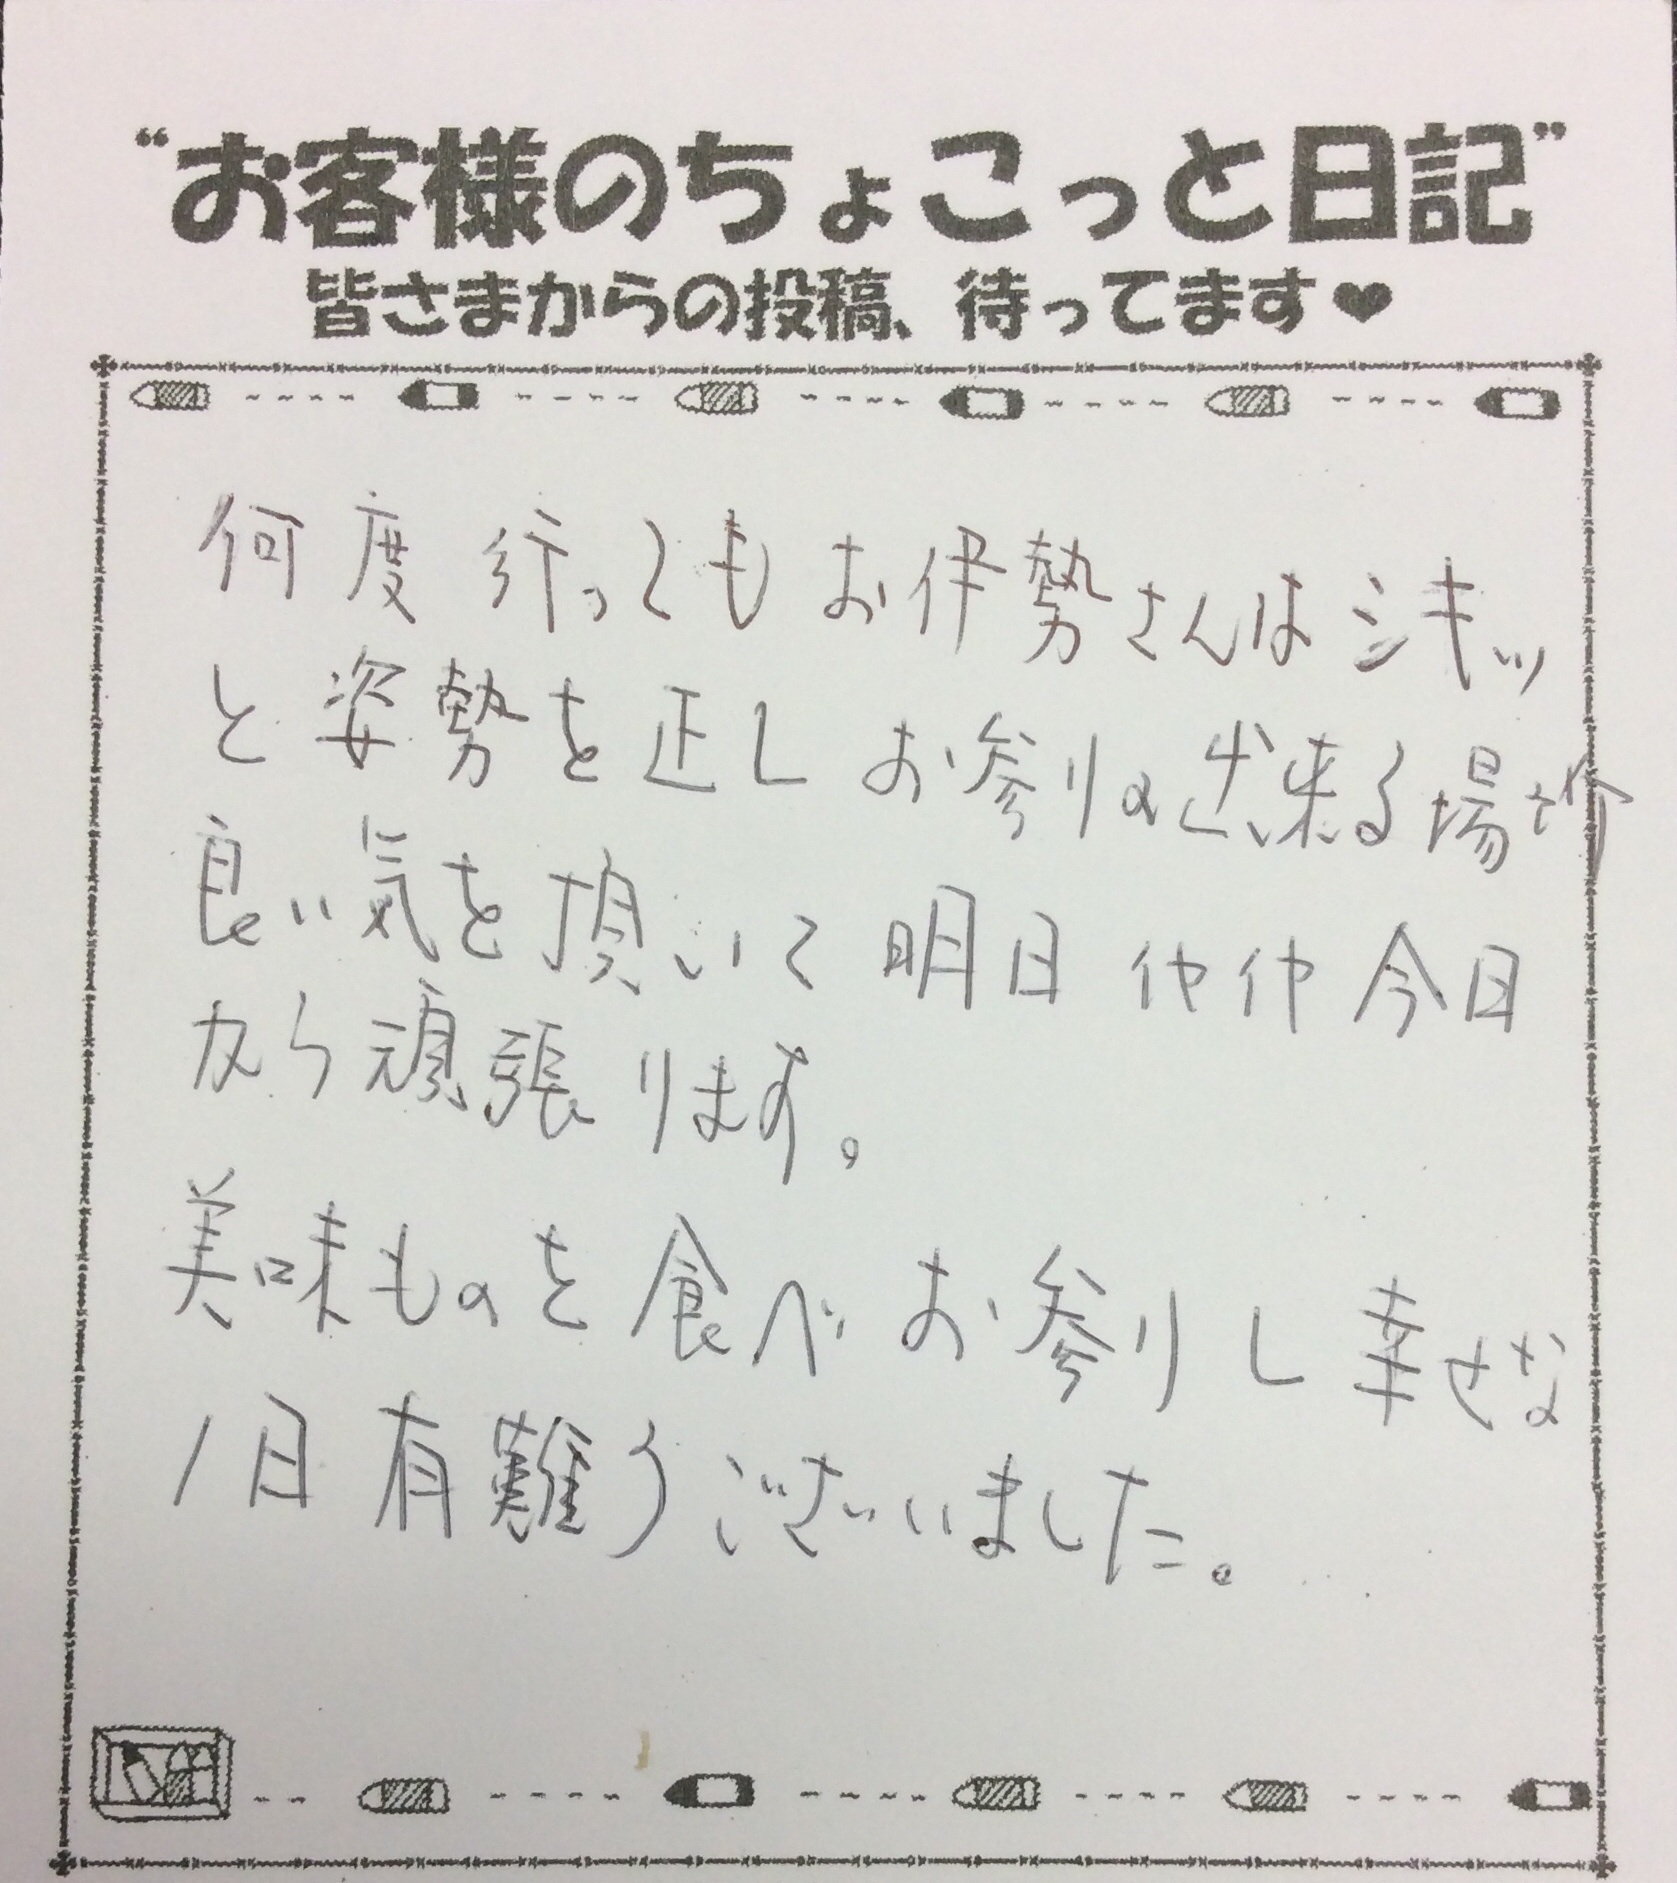 “お客様のちょこっと日記”
皆さまからの投稿、待ってます♥
何度行ってもお伊勢さんはシキッ
と姿勢を正しお参りの出来る場所
良い気を頂いて明日イヤイヤ今日
から頑張ります。
美味ものを食べお参りし幸せな
1日有難うございました。